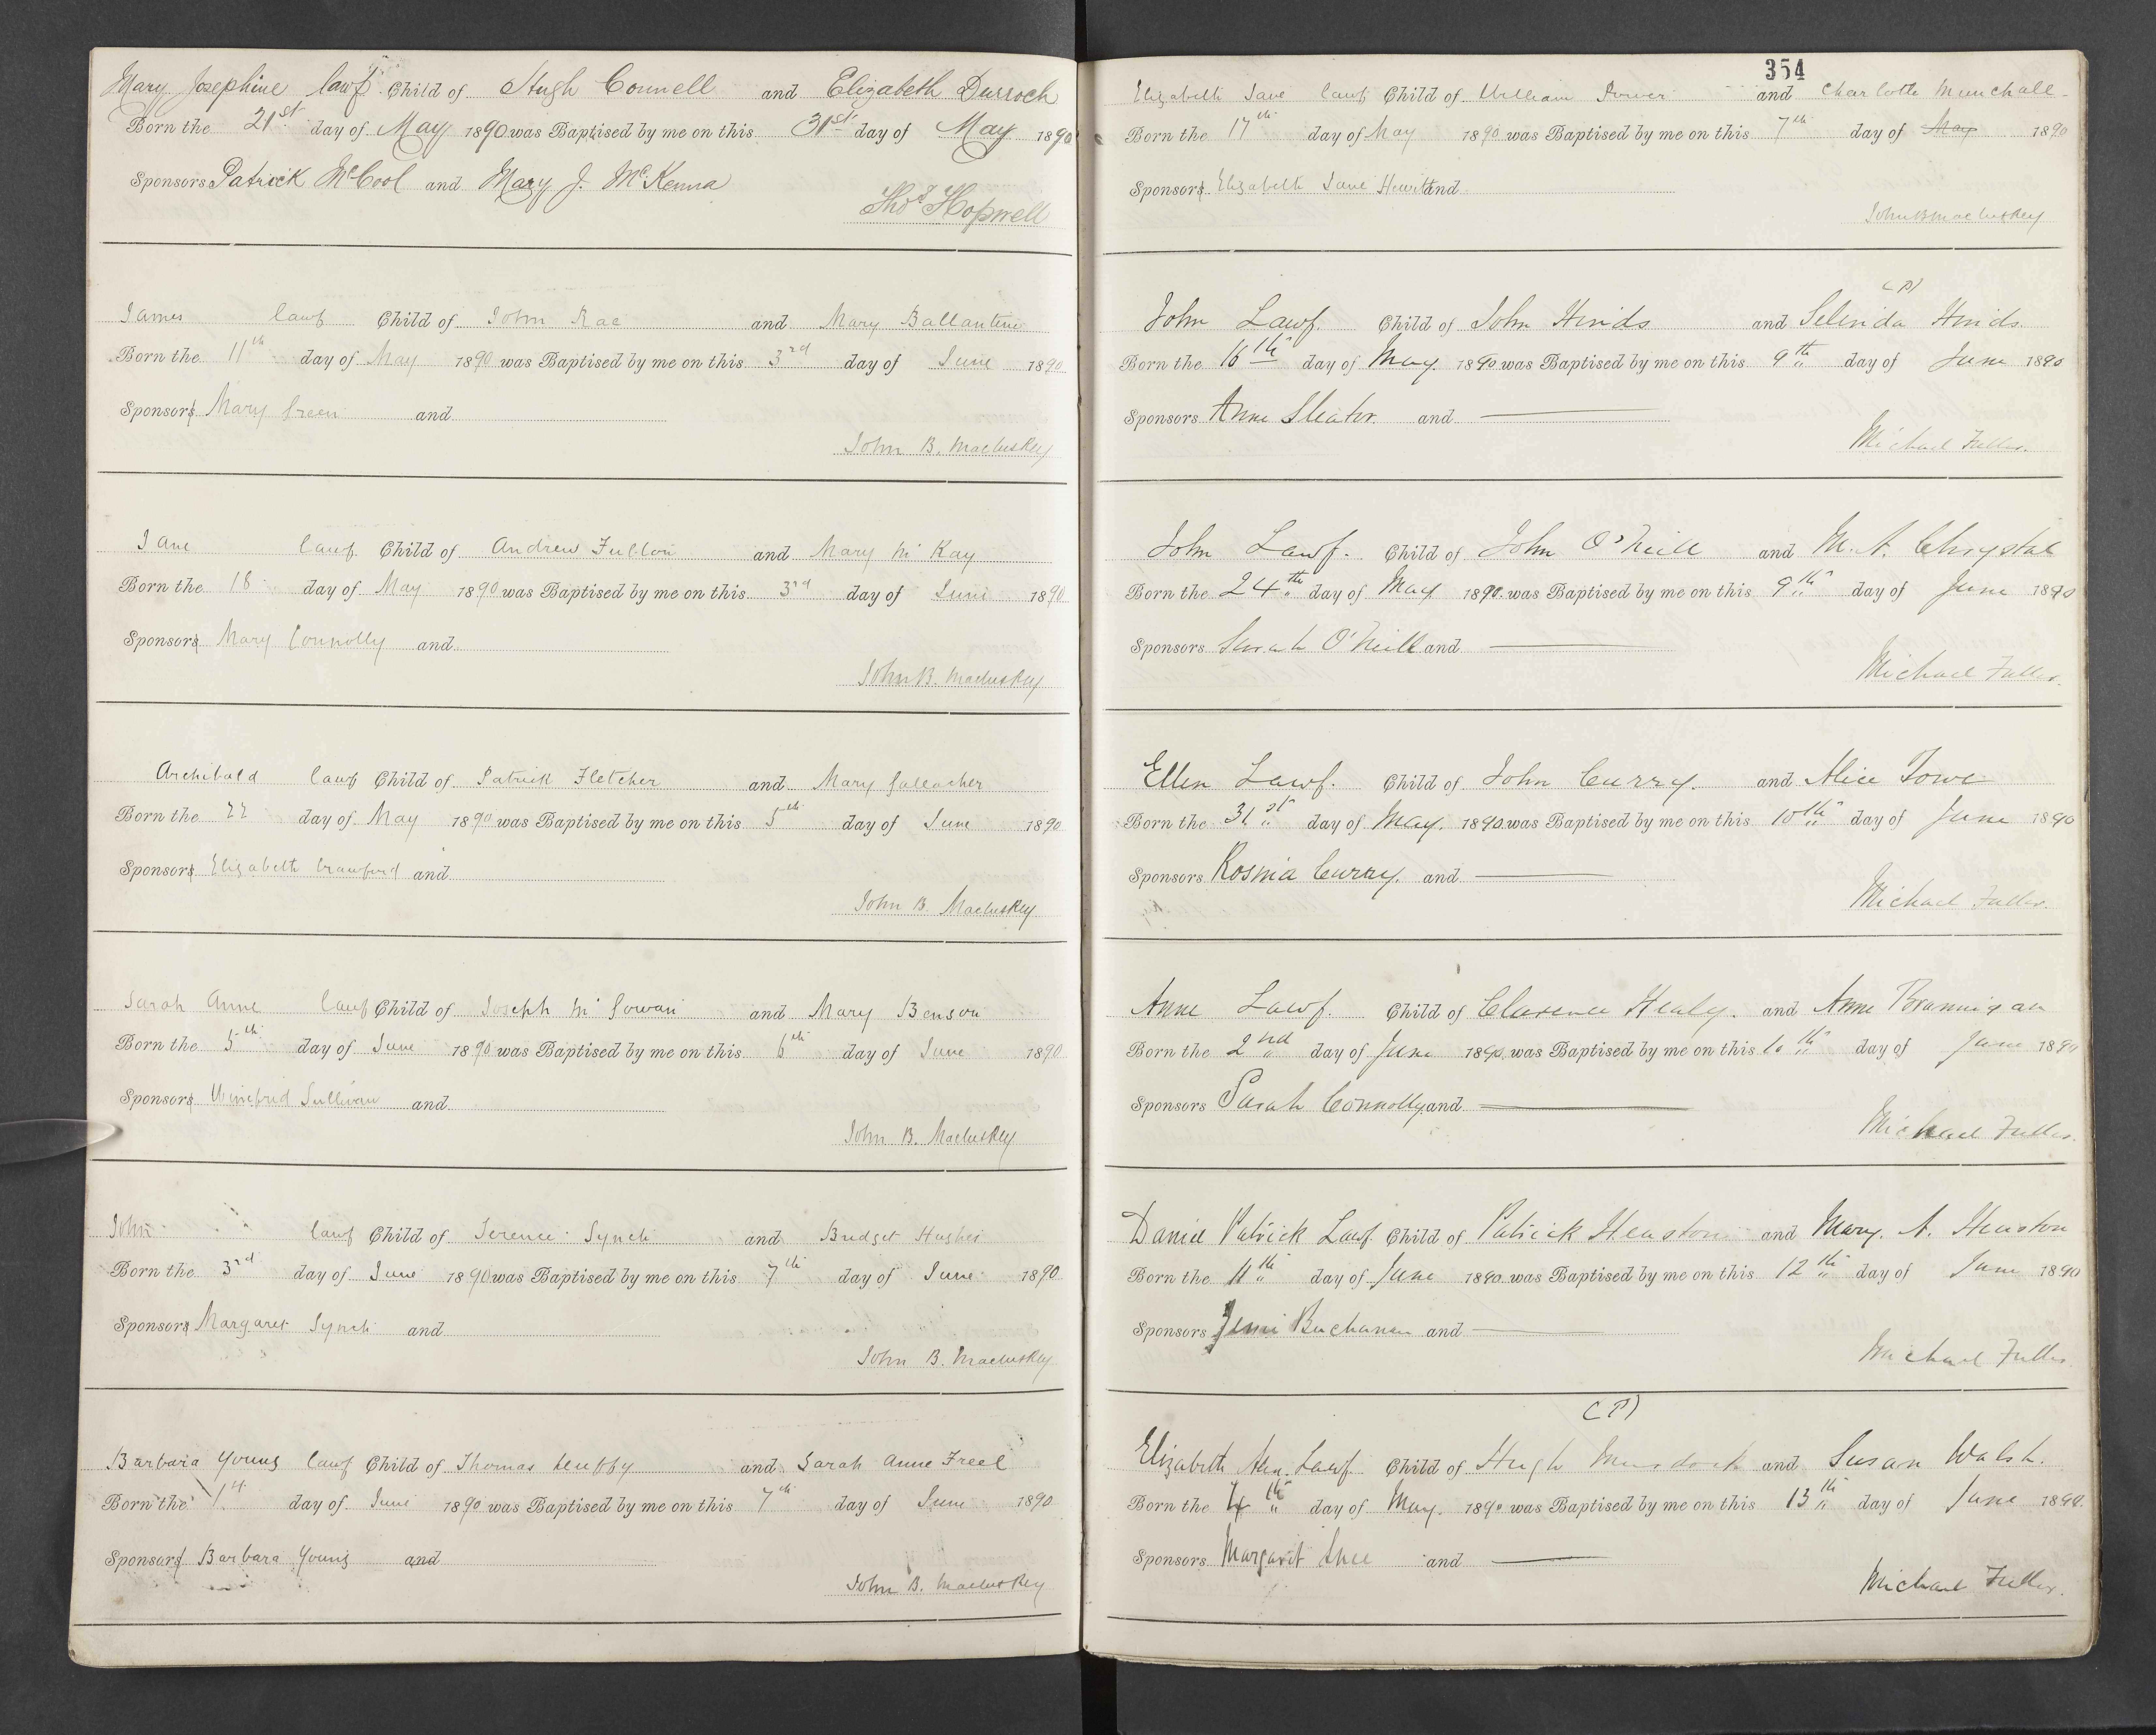 Mary Josephine lawf. Child of Hugh Connell and Elizabeth Durroch
Born the 21st day of May 1890 was Baptised by me on this 31st day of May 1890
Sponsors Patrick McCool and Mary J. McKenna
Thos Hopwell
James lawf Child of John Rae and Mary Ballantine
Born the 11th day of May 1890 was Baptised by me on this 3rd day of June 1890
Sponsors Mary Green and
John B. Macluskey
Jane lawf. Child of Andrew Fulton and Mary McKay
Born the 18 day of May 1890 was Baptised by me on this 3rd day of June 1890
Sponsors Mary Connolly and
John B. Macluskey
Archibald lawf Child of Patrick Fletcher and Mary Gallacher
Born the 22 day of May 1890 was Baptised by me on this 5th day of June 1890
Sponsors Elizabeth Crawford and
John B. Macluskey
Sarah Anne lawf Child of Joseph McGowan and Mary Benson
Born the 5th day of June 1890 was Baptised by me on this 6th day of June 1890
Sponsors Winefrid Sullivan and
John B. Macluskey
John lawf Child of Terence Lynch and Bridget Hughes
Born the 3rd day of June 1890 was Baptised by me on this 7th day of June 1890
Sponsors Margaret Lynch and
John B. Macluskey
Barbara Young lawf Child of Thomas and Sarah Anne Freel
Born the 1st day of June 1890 was Baptised by me on this 7th day of June 1890
Sponsors Barbara Young and
John B. Macluskey
354
Elizabeth Jane lawf Child of William Power and Charlotte
Born the 17th day of May 1890 was Baptised by me on this 7th day of May 1890
Sponsors Elizabeth Jane and
John B Macluskey
(P)
John Lawf. Child of John Hinds and Selinda Hinds.
Born the 16th day of May 1890 was Baptised by me on this 9th day of June 1890
Sponsors Anne Slater. and
Michael Fuller.
John Lawf. Child of John O'Neill and M. A. Chrystal
Born the 24th day of May 1890 was Baptised by me on this 9th day of June 1890
Sponsors Sarah O'Neill and
Michael Fuller.
Ellen Lawf. Child of John Curry. and Alice Towe
Born the 31st day of May. 1890 was Baptised by me on this 10th day of June 1890
Sponsors Rosina Curry. and
Michael Fuller.
Anne Lawf. Child of Clarence Healy. and Anne Brannigan
Born the 2nd day of June 1890 was Baptised by me on this 10th day of June 1890
Sponsors Sarah Connolly and
Michael Fuller.
Daniel Patrick Lawf. Child of Patrick Heaston and Mary. A. Heaston
Born the 11th day of June 1890 was Baptised by me on this 12th day of June 1890
Sponsors Buchanan and
Michael Fuller.
(P)
Elizabeth Ann. Lawf. Child of Hugh Murdoch and Susan Walsh.
Born the 4th day of May. 1890 was Baptised by me on this 13th day of June 1890.
Sponsors Margaret and
Michael Fuller.